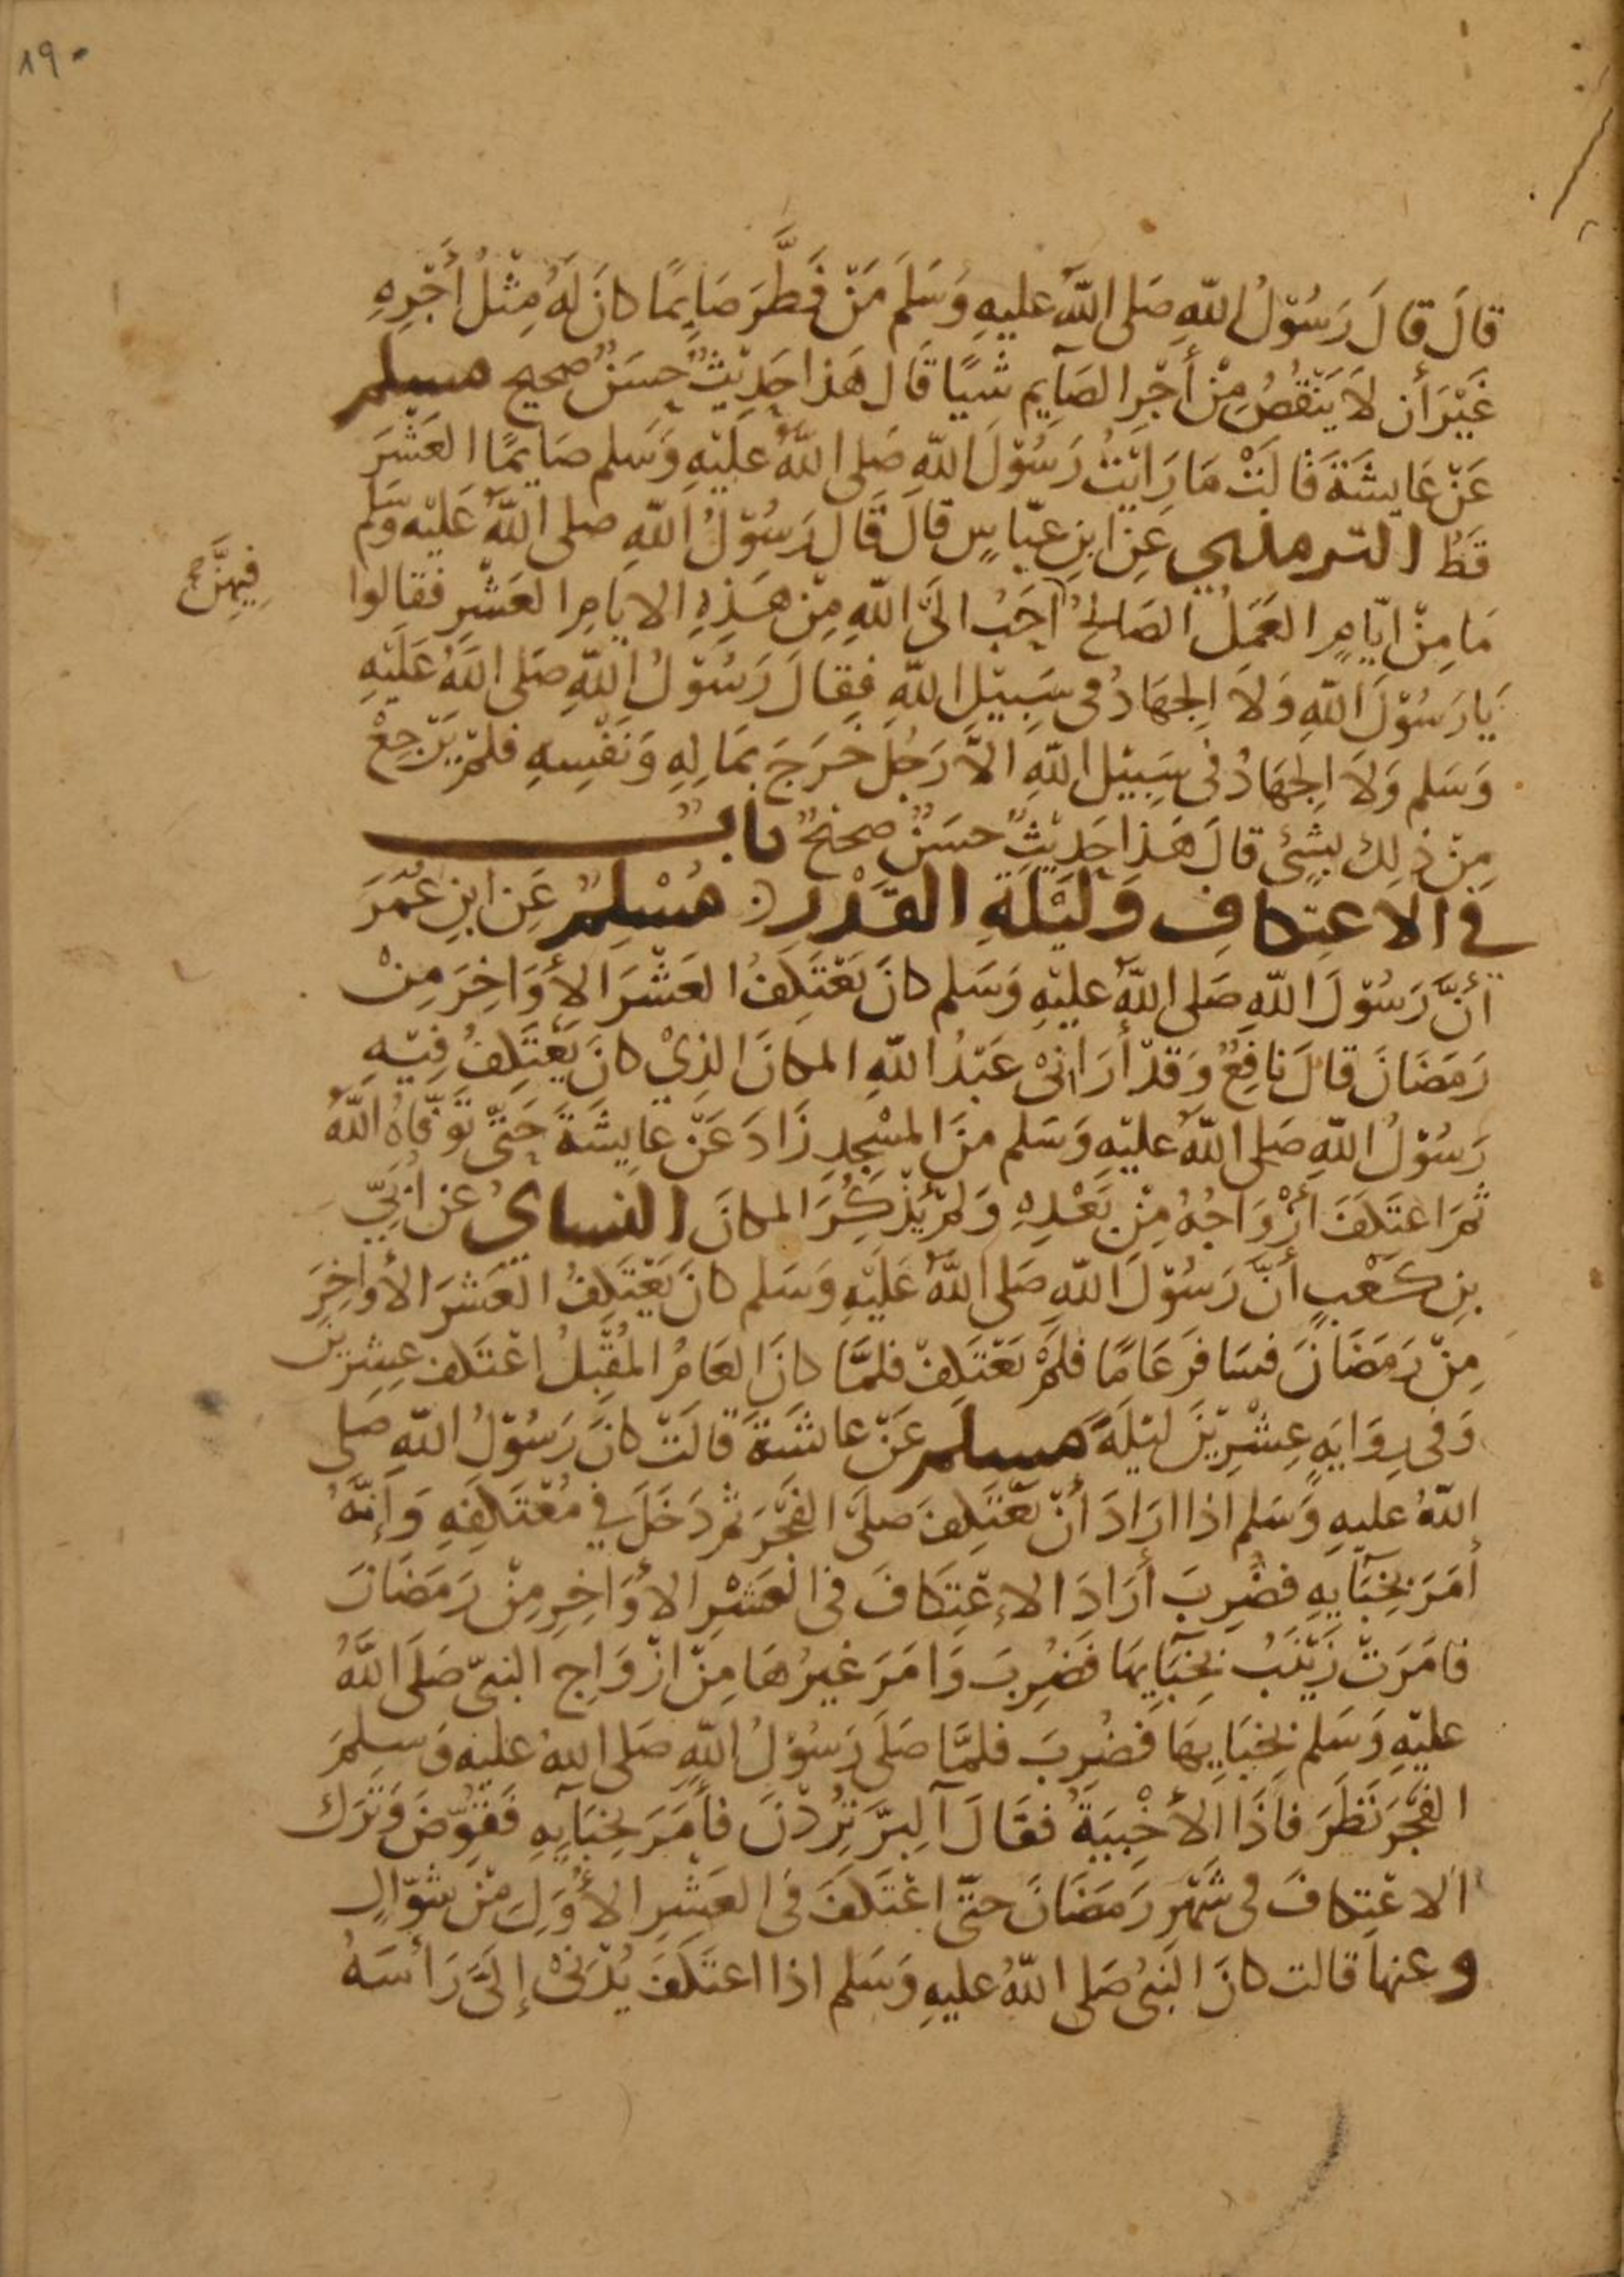 ١٩٠
قَالَ قَالَ رَسُوْلُ اللّهِ صَلى اللّهُ عليهِ وَسَلَمَ مَنْ فَطَّرَ صَايِمًا كانَ لَهُ مِثْلُ أَجْرِهِ
غَيْرَ أن لاَ يَنْقُصُ مِنْ أَجْرِ الصَآيِم شَيًا قَال هَذا حَدِيْثٌ حَسَنٌ صحيح مسلم
عَنْ عَايِشَةَ قَالَتْ مَا رَايْتُ رَسُوْلَ اللّهِ صَلى اللّهُ عَلَيْهِ وَسَلم صَايمًا العَشْرَ
قَطُ الترمذي عَنِ ابنِ عَبّاسٍ قالَ قَال رَسُوْلُ اللّهِ صلى اللّهُ عَلَيْه وسَلم
مَا مِنْ ايّامٍ العَمَلُ الصَالحُ أحَبُ الىَ اللّهِ مِنْ هَذِهِ الايامِ العَشْرِ فقالوا
فِيهِنَّ صح
يَا رَسُوْلَ اللّهِ وَلاَ الجهَادُ فى سَبِيْلِ اللّهِ فقَالَ رَسُوْلُ اللّهِ صَلى اللّهُ عَلَيْهِ
وَسَلم وَلاَ الجهَادُ فى سَبِيْل اللّهِ الاَّ رَجُلٌ خَرَجَ بمَالِهِ وَنَفْسِهِ فلمْ يَرْجِعْ
مِنْ ذلِكَ بشِئٍ قالَ هَذا حَدِيْثٌ حسَنٌ صحيحٌ بابٌ
في الاعتِكافِ وَلَيْلَةِ القَدْرِ مُسْلِمٌ عَنِ ابنِ عُمَرَ
أنَّ رَسُوْلَ اللّهِ صَلى اللّهُ عليْهِ وَسَلم كانَ يَعْتَكفُ العَشْرَ الأوَاخِرَ مِنْ
رَمَضَانَ قالَ نافِعٌ وَقدْ أرَانىْ عَبْدُ اللّهِ المكانَ الذِيْ كانَ يَعْتَكِفُ فِيْهِ
رَسُوْلُ اللّهِ صَلى اللّهُ عليْهِ وَسَلم منَ المسْجِدِ زَادَ عَنْ عَايِشَةَ حَتىّ تَوَفّاهُ اللّهُ
ثمَ اعْتَكَفَ أزْوَاجُهُ مِنْ بَعْدِهِ وَلمْ يَذْكُرَ المكانَ النسايُ عَن أبَيِّ
بنِ كَعْبٍ أنَّ رَسُوْلَ اللّهِ صَلى اللّهُ عَلَيْهِ وَسَلم كانَ يَعْتَكِفُ العَشرَ الأواخِرَ
مِنْ رَمَضَانَ فسَافرَ عَامًا فلَمْ يَعْتَكِفْ فلمَّا كانَ العَامُ المُقْبِلُ اعْتَكف عِشرينَ
وَفى رِوَايَهٍ عِشْرِيْنَ لَيْلَةً مسلم عَنْ عائشَةَ قالَتْ كانَ رَسُوْلُ اللّهِ صَلى
اللّهُ عليهِ وَسَلم اذا ارَادَ أنْ يَعْتَكِفَ صَلىَّ الفَجْرَ ثمَ دَخَلَ في مُعْتَكَفِهِ وَإنَّهُ
أمَرَ بخِبَآيِهِ فضُرِبَ أرَادَ الاِعْتِكَافَ فى العَشْرِ الأوَاخِرِ مِنْ رَمَضَانَ
فامَرَتْ زَيْنَبُ بِخِبَآيهَا فضُرِبَ وَامَرَ غيْرُهَا مِنْ ازْوَاجِ النبىّ صَلَى اللّهُ
عليْهِ وَسَلم بخِبَايِهَا فضُرِبَ فلمَّا صَلَى رَسُوْلُ اللّهِ صَلى اللهُ عليْه وَسلِمَ
الفجْرَ نَظَرَ فاَذَا الأخْبِيَةُ فقَالَ آلبِرَّ تُرِدْنَ فأمَرَ بخِبَآيِهِ فقُوّضَ وَتَرَكَ
الاعْتِكافَ فى شَهْرِ رَمَضَانَ حتىّ اعْتَكَفَ فى العَشْرِ الأوَلِ مِنْ شوّالٍ
وعنها قالت كانَ النَبىُ صَلى اللّهُ عليهِ وَسَلم اذا اعتَكَفَ يُدْنىْ إلَىَّ رَأسَهُ